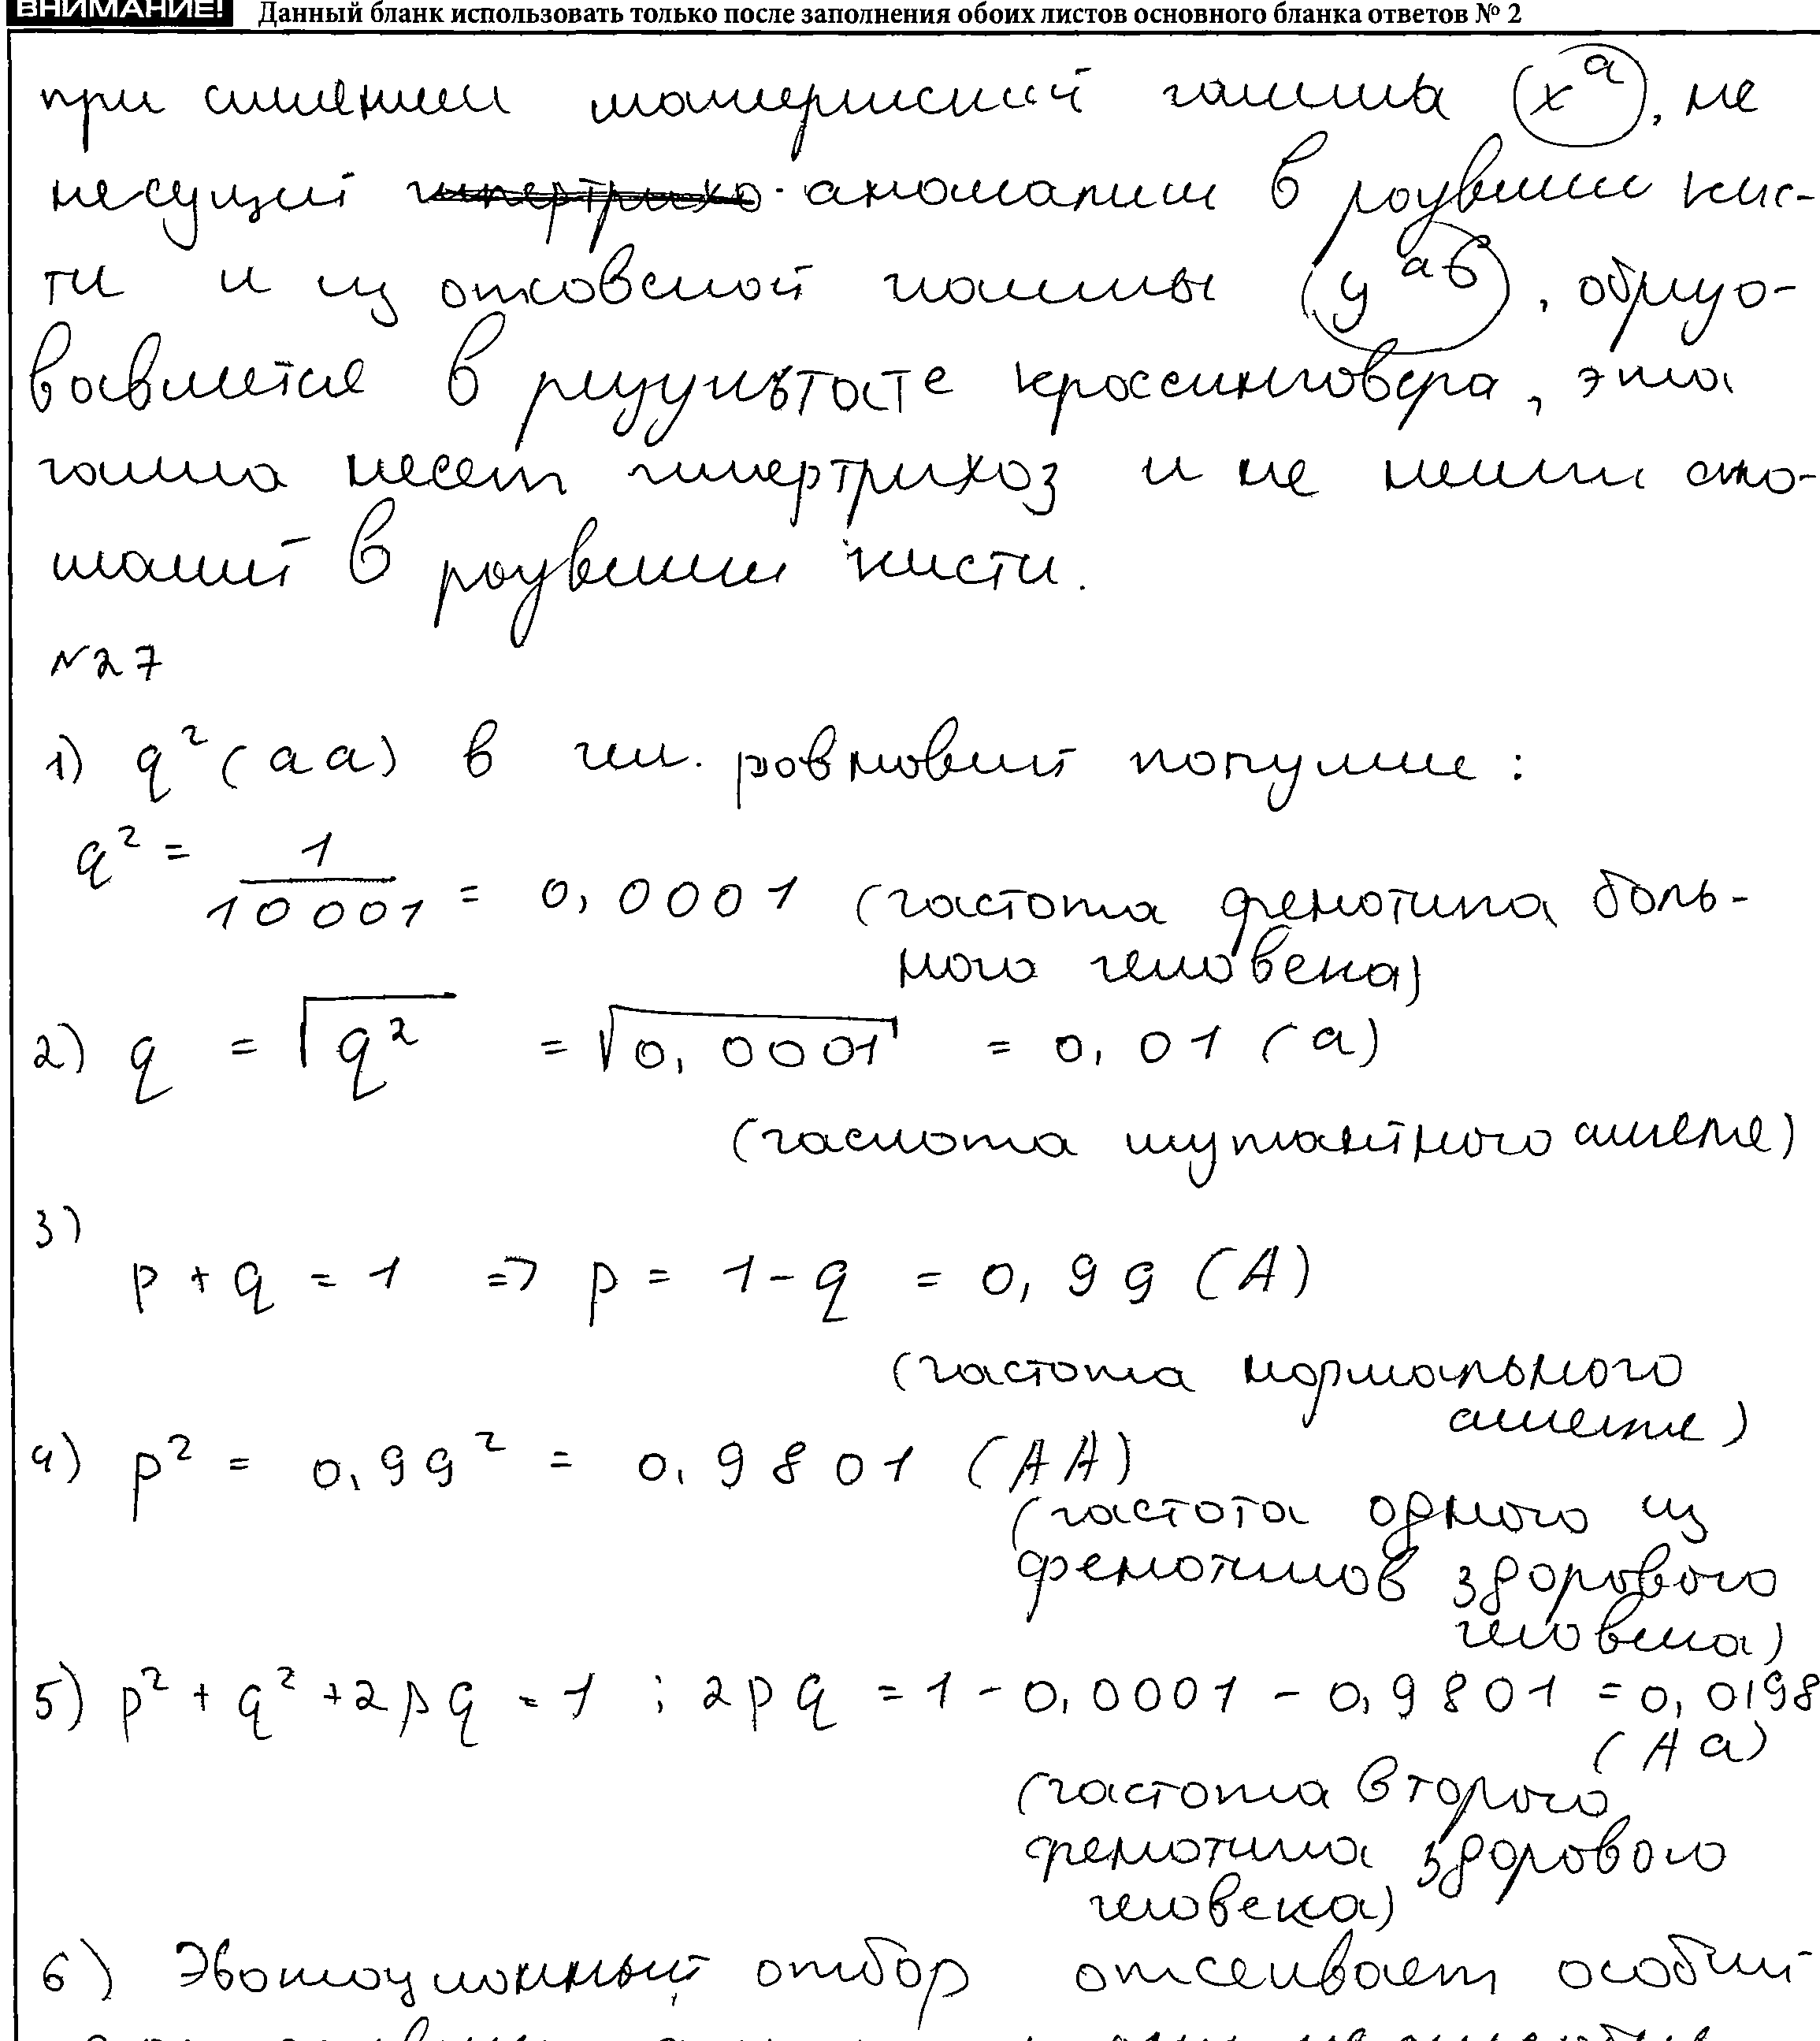 ВНИМАНИЕ! Данный бланк использовать только после заполнения обоих листов основного бланка ответов № 2
при слиянии материнский гаметы (x^a), не
несущий гипертрихо аномалии в развитии кис-
ти и из отцовской гаметы (y^aб), образо-
вавшейся в результате кроссинговера, эта
гамета несет гипертрихоз и не несет ано-
малий в развитии кисти.
№27
1) q² (aa) в ген. равновесий популяции:
q² = 1/10001 = 0,0001 (частота фенотипа боль-
ного человека)
2) q = √q² = √0,0001 = 0,01 (a)
(частота мутантного аллеля)
3)
p + q = 1 => p = 1 - q = 0,99 (A)
(частота нормального
аллеля)
4) p² = 0,99² = 0,9801 (AA)
(частота одного из
фенотипов здорового
человека)
5) p² + q² + 2pq = 1 ; 2pq = 1 - 0,0001 - 0,9801 = 0,0198
(Aa)
(частота второго
фенотипа здорового
человека)
6) Эволюционный отбор отсеивает особий